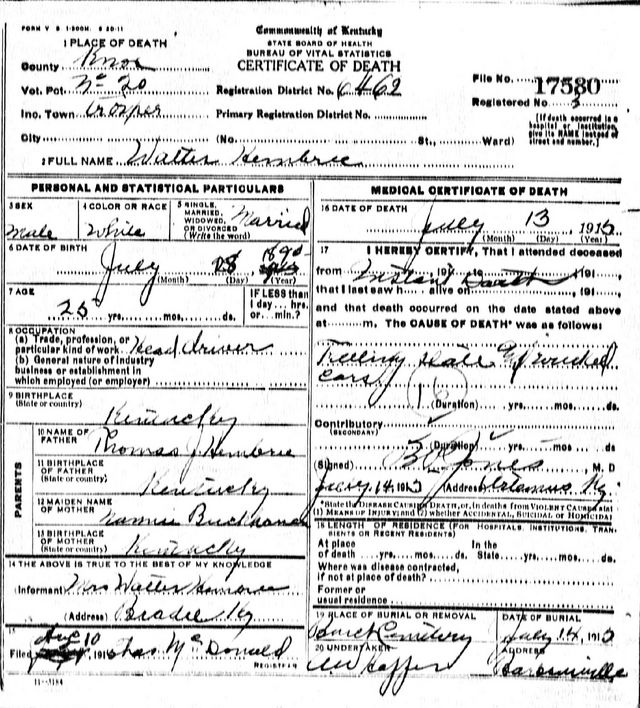 FORM V S 1-300M. 8 20-11
Commonwealth of Kentucky
STATE BOARD OF HEALTH
BUREAU OF VITAL STATISTICS
CERTIFICATE OF DEATH
1 PLACE OF DEATH
County Knox
Vot. Pct. No 20 Registration District No. 6462
File No. 17580
Registered No 3
Ino. Town Primary Registration District No.
[If death occurred in a hospital or institution, give its NAME instead of street and number.]
City (No. St., Ward)
2 FULL NAME Walter Hembree
PERSONAL AND STATISTICAL PARTICULARS
3 SEX Male
4 COLOR OR RACE White
5 SINGLE, MARRIED, WIDOWED, OR DIVORCED (Write the word) Married
6 DATE OF BIRTH July 28 1890
(Month) (Day) (Year)
7 AGE 25 yrs. mos. ds.
IF LESS than 1 day...hrs. or...min.?
8 OCCUPATION
(a) Trade, profession, or particular kind of work Head driver
(b) General nature of industry business or establishment in which employed (or employer)
9 BIRTHPLACE (State or country) Kentucky
PARENTS
10 NAME OF FATHER Thomas J Hembree
11 BIRTHPLACE OF FATHER (State or country) Kentucky
12 MAIDEN NAME OF MOTHER Nannie
13 BIRTHPLACE OF MOTHER (State or country) Kentucky
14 THE ABOVE IS TRUE TO THE BEST OF MY KNOWLEDGE
(Informant Mrs Walter Hembree
(Address) Ky
15
Filed Aug 10, 1915 Chas McDonald
REGISTRAR
11-3184
MEDICAL CERTIFICATE OF DEATH
16 DATE OF DEATH July 13, 1915
(Month) (Day) (Year)
17 I HEREBY CERTIFY, That I attended deceased
from Instant Death, 191
that I last saw h alive on, 191,
and that death occurred on the date stated above
at m. The CAUSE OF DEATH* was as follows:
cars
(Duration) yrs. mos. ds.
Contributory
(SECONDARY)
(Duration) yrs. mos. ds.
(Signed) Jones, M. D
July 14, 1915 (Address) Ky.
*State the DISEASE CAUSING DEATH, or, in deaths from VIOLENT CAUSES state (1) MEANS OF INJURY; and (2) whether ACCIDENTAL, SUICIDAL or HOMICIDAL
18 LENGTH OF RESIDENCE (FOR HOSPITALS, INSTITUTIONS, TRANSIENTS OR RECENT RESIDENTS)
At place of death yrs. mos. ds. In the State yrs. mos. ds.
Where was disease contracted, if not at place of death?
Former or usual residence
19 PLACE OF BURIAL OR REMOVAL Cemetery
DATE OF BURIAL July 14, 1915
20 UNDERTAKER
ADDRESS Barbourville